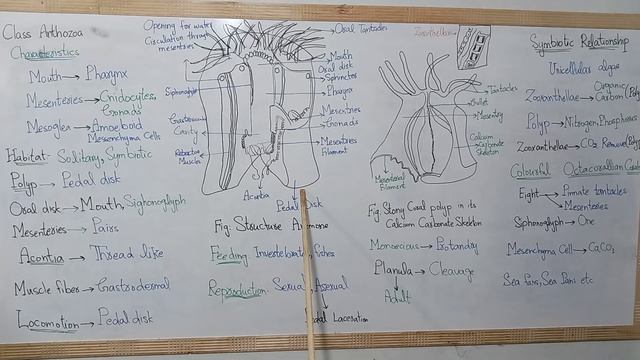 Class Anthozoa
Characteristics
Mouth → Pharynx
Mesenteries → Cnidocytes,
Gonads
Mesoglea → Amoeboid
Mesenchyma Cells
Habitat: Solitary, Symbiotic
Polyp → Pedal disk
Oral disk → Mouth, Siphonoglyph
Mesenteries → Pairs
Acontia → Thread like
Muscle fiber → Gastrodermal
Locomotion → Pedal disk
Opening for water
Circulation through
mesenteries
Oral Tentacles
Mouth
Oral disk
Sphincter
Pharynx
Mesenteries
Gonads
Mesenteries
Filament
Gastrovascular
Cavity
Retractor
Muscles
Acontia
Pedal Disk
Fig: Structure Anemone
Feeding Invertebrate, Fishes
Reproduction: Sexual, Asexual
Pedal Laceration
Zooxanthellae
Tentacles
Gullet
Mesentery
Calcium
Carbonate
Skeleton
Mesenterial
Filament
Fig: Stony Coral polyp in its
Calcium Carbonate Skeleton
Monoecious → Protandry
Planula → Cleavage
Adult
Symbiotic Relationship
Unicellular algae
Zooxanthellae → Organic
Carbon
Polyp → Nitrogen, Phosphorus
Zooxanthellae → CO2 Removal
Colourful Octocorallian
Eight → Pinnate tentacles
→ Mesenteries
Siphonoglyph → One
Mesenchyma Cell → CaCO3
Sea Fans, Sea Pens etc